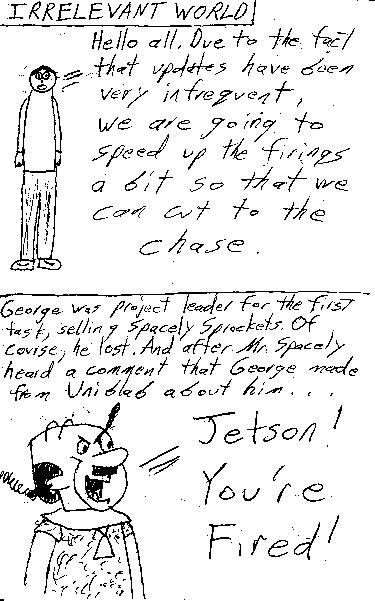 IRRELEVANT WORLD
Hello all. Due to the fact
that updates have been
very infrequent,
we are going to
speed up the firings
a bit so that we
can cut to the
chase.
George was project leader for the first
task, selling Spacely Sprockets. Of
course, he lost. And after Mr. Spacely
heard a comment that George made
from Uniblab about him...
Jetson!
You're
Fired!